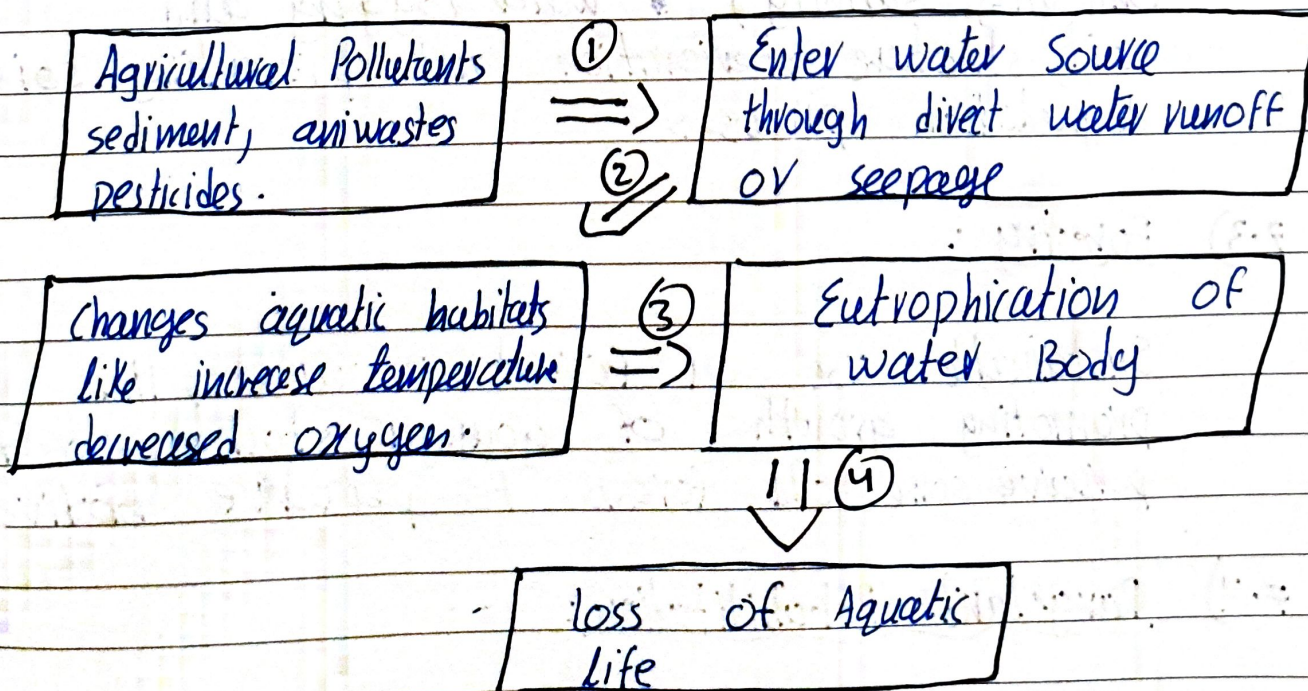 Agricultural Pollutants
sediment, aniwastes
pesticides.
①
Enter water Source
through direct water runoff
or seepage
②
Changes aquatic habitats
like increase temperature
decreased oxygen.
③
Eutrophication of
water Body
④
loss of Aquatic
life